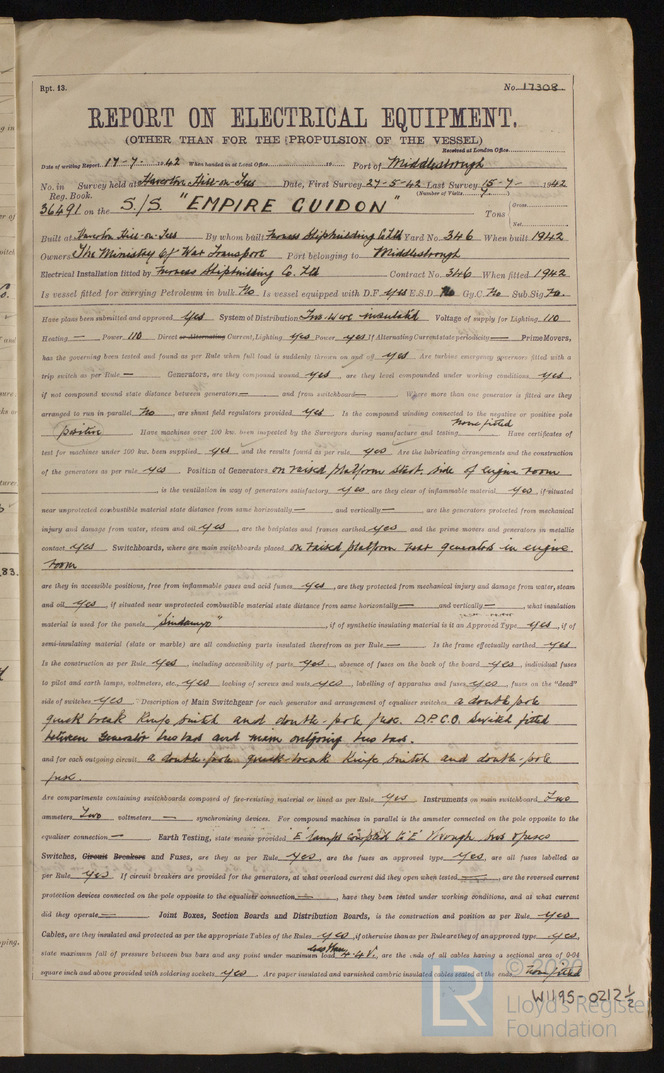 Rpt. 13.
No. 17308
REPORT ON ELECTRICAL EQUIPMENT.
(OTHER THAN FOR THE PROPULSION OF THE VESSEL)
Received at London Office
Date of writing Report 17-7-1942 When handed in at Local Office 19 Port of Middlesbrough
No. in Reg. Book. Survey held at Haverton Hill-on-Tees Date, First Survey 27-5-42 Last Survey 15-7-1942
(Number of Visits 7)
36491 on the S/S. "EMPIRE GUIDON" Tons Gross Net
Built at Haverton Hill-on-Tees By whom built Furness Shipbuilding Co Ltd Yard No. 346 When built 1942
Owners The Ministry of War Transport Port belonging to Middlesbrough
Electrical Installation fitted by Furness Shipbuilding Co. Ltd Contract No. 346 When fitted 1942
Is vessel fitted for carrying Petroleum in bulk No. Is vessel equipped with D.F. yes E.S.D. No Gy.C. No Sub.Sig. No.
Have plans been submitted and approved Yes System of Distribution Two-wire insulated Voltage of supply for Lighting 110
Heating — Power 110 Direct or Alternating Current, Lighting yes Power yes If Alternating Current state periodicity — Prime Movers,
has the governing been tested and found as per Rule when full load is suddenly thrown on and off yes Are turbine emergency governors fitted with a
trip switch as per Rule — Generators, are they compound wound yes, are they level compounded under working conditions yes,
if not compound wound state distance between generators — and from switchboard — Where more than one generator is fitted are they
arranged to run in parallel No, are shunt field regulators provided yes Is the compound winding connected to the negative or positive pole
positive Have machines over 100 kw. been inspected by the Surveyors during manufacture and testing None fitted Have certificates of
test for machines under 100 kw. been supplied yes and the results found as per rule yes Are the lubricating arrangements and the construction
of the generators as per rule yes Position of Generators on raised platform Stbd. side of engine room
, is the ventilation in way of generators satisfactory yes are they clear of inflammable material yes, if situated
near unprotected combustible material state distance from same horizontally — and vertically —, are the generators protected from mechanical
injury and damage from water, steam and oil yes, are the bedplates and frames earthed yes and the prime movers and generators in metallic
contact yes Switchboards, where are main switchboards placed on raised platform near generators in engine
room
are they in accessible positions, free from inflammable gases and acid fumes yes, are they protected from mechanical injury and damage from water, steam
and oil yes, if situated near unprotected combustible material state distance from same horizontally — and vertically —, what insulation
material is used for the panels "Sindanyo", if of synthetic insulating material is it an Approved Type yes, if of
semi-insulating material (slate or marble) are all conducting parts insulated therefrom as per Rule — Is the frame effectually earthed yes
Is the construction as per Rule yes, including accessibility of parts yes, absence of fuses on the back of the board yes, individual fuses
to pilot and earth lamps, voltmeters, etc. yes locking of screws and nuts yes, labelling of apparatus and fuses yes, fuses on the "dead"
side of switches yes Description of Main Switchgear for each generator and arrangement of equaliser switches a double pole
quick break knife switch and double-pole fuse. D.P.C.O. switch fitted
between Generator bus bars and main outgoing bus bars.
and for each outgoing circuit a double-pole quick-break knife switch and double-pole
fuse.
Are compartments containing switchboards composed of fire-resisting material or lined as per Rule yes Instruments on main switchboard Two
ammeters Two voltmeters — synchronising devices. For compound machines in parallel is the ammeter connected on the pole opposite to the
equaliser connection — Earth Testing, state means provided E lamps coupled to "E" through bus & fuses
Switches, Circuit Breakers and Fuses, are they as per Rule yes, are the fuses an approved type yes, are all fuses labelled as
per Rule yes If circuit breakers are provided for the generators, at what overload current did they open when tested —, are the reversed current
protection devices connected on the pole opposite to the equaliser connection —, have they been tested under working conditions, and at what current
did they operate — Joint Boxes, Section Boards and Distribution Boards, is the construction and position as per Rule yes
Cables, are they insulated and protected as per the appropriate Tables of the Rules yes, if otherwise than as per Rule are they of an approved type yes,
state maximum fall of pressure between bus bars and any point under maximum load less than 4.4V., are the ends of all cables having a sectional area of 0·04
square inch and above provided with soldering sockets yes Are paper insulated and varnished cambric insulated cables sealed at the ends None fitted
© 2020
Lloyd's Register
Foundation
W1195-0212 1/2